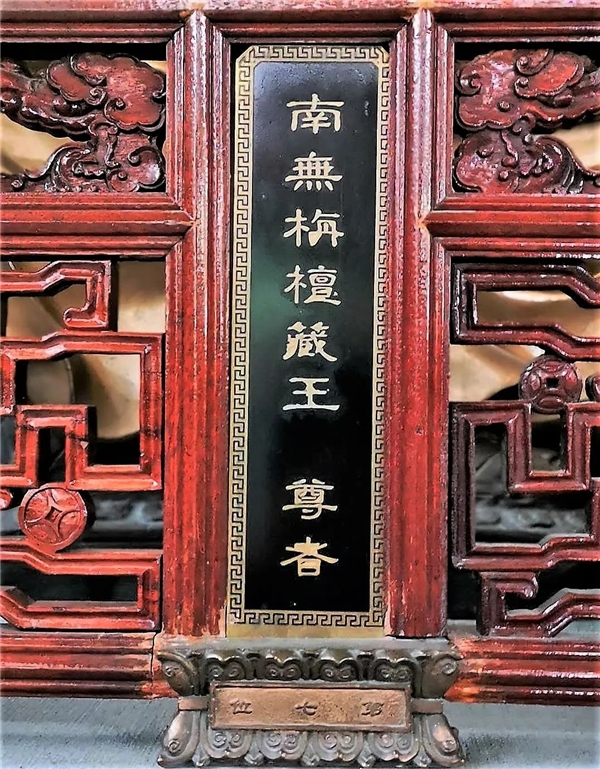 南無栴檀藏王 尊者
第七位